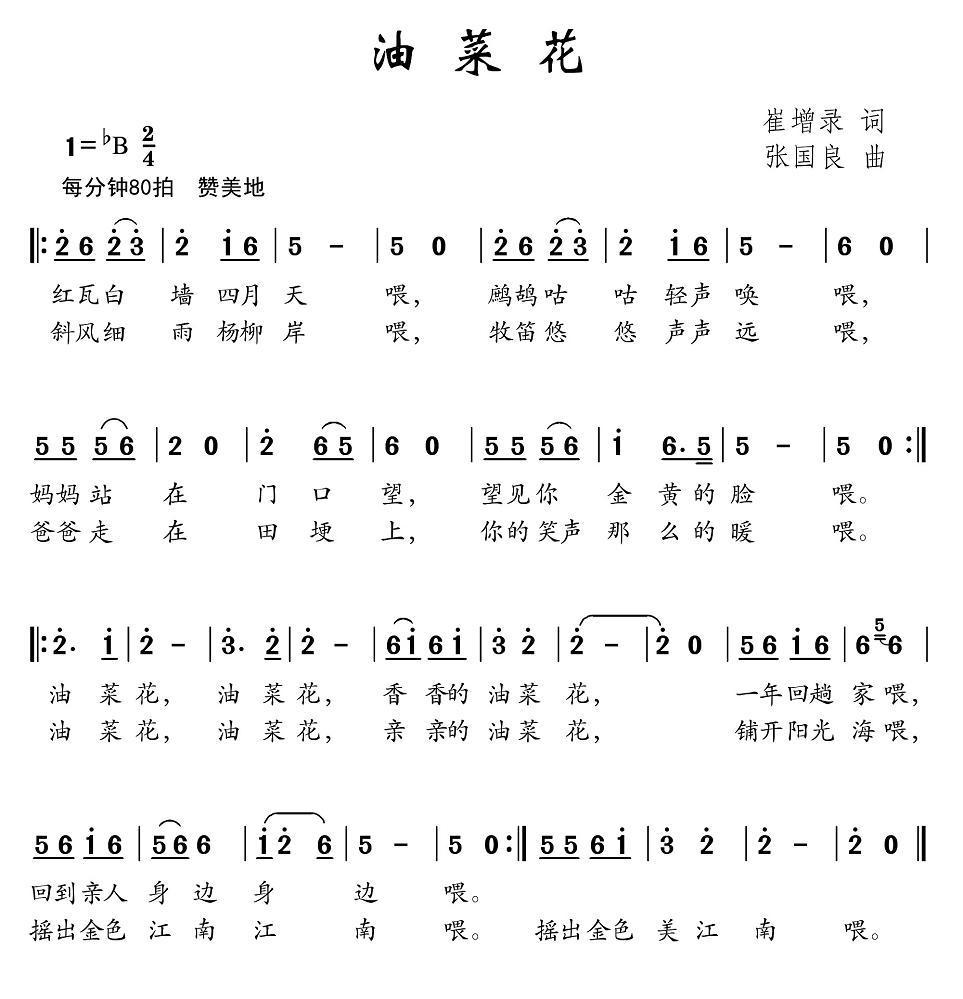 油菜花
崔增录 词
1=♭B 2/4
张国良 曲
每分钟80拍 赞美地
‖: 2̇6 2̇3̇ | 2̇ 1̇6 | 5 - | 5 0 | 2̇6 2̇3̇ | 2̇ 1̇6 | 5 - | 6 0 |
红瓦白 墙 四月 天 喂, 鹧鸪咕 咕 轻声 唤 喂,
斜风细 雨 杨柳 岸 喂, 牧笛悠 悠 声声 远 喂,
55 56 | 2 0 | 2̇ 65 | 6 0 | 55 56 | 1̇ 6.5 | 5 - | 5 0 :‖
妈妈 站 在 门 口 望, 望见你 金 黄的 脸 喂。
爸爸 走 在 田 埂 上, 你的笑声 那 么的 暖 喂。
‖: 2̇. 1̇ | 2̇ - | 3̇. 2̇ | 2̇ - | 61̇ 61̇ | 3̇ 2̇ | 2̇ - | 2̇ 0 | 56 1̇6 | 6 5 6 |
油 菜 花, 油 菜 花, 香 香的 油 菜 花, 一年回趟 家 喂,
油 菜 花, 油 菜 花, 亲 亲的 油 菜 花, 铺开阳光 海 喂,
56 1̇6 | 56 6 | 1̇2̇ 6 | 5 - | 5 0 :‖ 55 61̇ | 3̇ 2̇ | 2̇ - | 2̇ 0 ‖
回到亲人 身 边 身 边 喂。
摇出金色 江 南 江 南 喂。 摇出金色 美 江 南 喂。